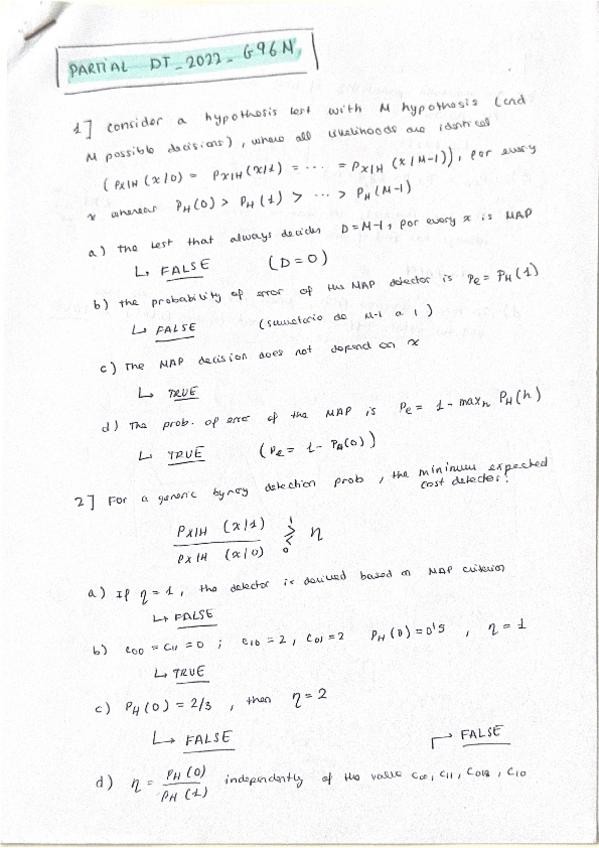 PARTIAL DT_2022_G96N
1] consider a hypothesis test with M hypothesis (and
M possible decisions), where all likelihoods are identical
( PX|H (x|0) = PX|H (x|1) = ... = PX|H (x|M-1)), for every
x whereas PH(0) > PH(1) > ... > PH(M-1)
a) the test that always decides D=M-1, for every x is MAP
↳ FALSE (D=0)
b) the probability of error of the MAP detector is Pe = PH(1)
↳ FALSE (sumatorio de M-1 a 1)
c) The MAP decision does not depend on x
↳ TRUE
d) The prob. of error of the MAP is Pe = 1 - maxh PH(h)
↳ TRUE (Pe = 1 - PH(0))
2] For a generic bynary detection prob, the minimum expected
cost detector:
PX|H (x|1) / PX|H (x|0) ≷ η
1
0
a) If η = 1, the detector is derived based on MAP criterion
↳ FALSE
b) c00 = c11 = 0 ; c10 = 2, c01 = 2 PH(0) = 0'5 , η = 1
↳ TRUE
c) PH(0) = 2/3 , then η = 2
↳ FALSE
↱ FALSE
d) η = PH(0) / PH(1) independently of the value c00, c11, c01, c10